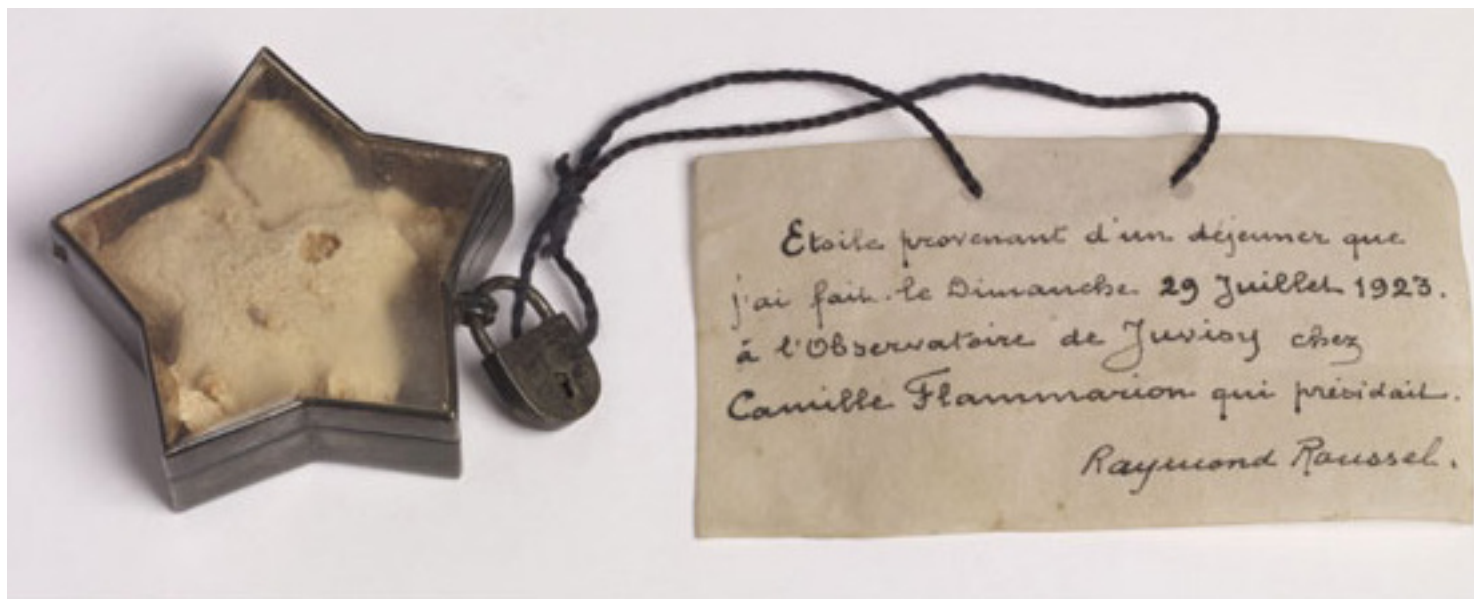 Etoile provenant d'un déjeuner que
j'ai fait le Dimanche 29 Juillet 1923.
à l'Observatoire de Juvisy chez
Camille Flammarion qui présidait.
Raymond Roussel.